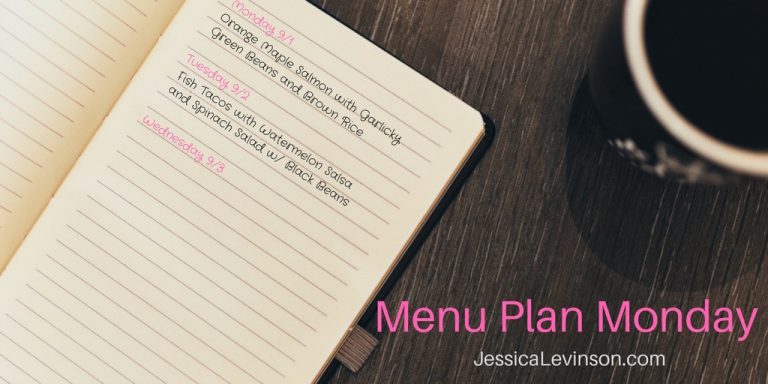 Monday 9/1
Orange Maple Salmon with Garlicky
Green Beans and Brown Rice
Tuesday 9/2
Fish Tacos with Watermelon Salsa
and Spinach Salad w/ Black Beans
Wednesday 9/3
Menu Plan Monday
JessicaLevinson.com